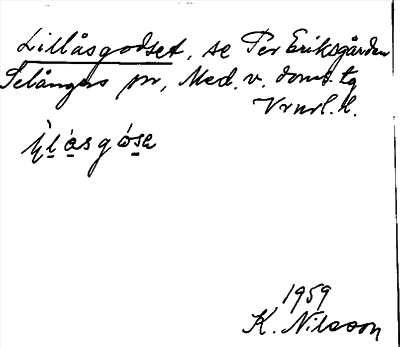 Lillåsgodset, se Per Eriksgården
Selångers pr, Med. v. doms. tg
Vrnrl. l.
1959
K. Nilsson